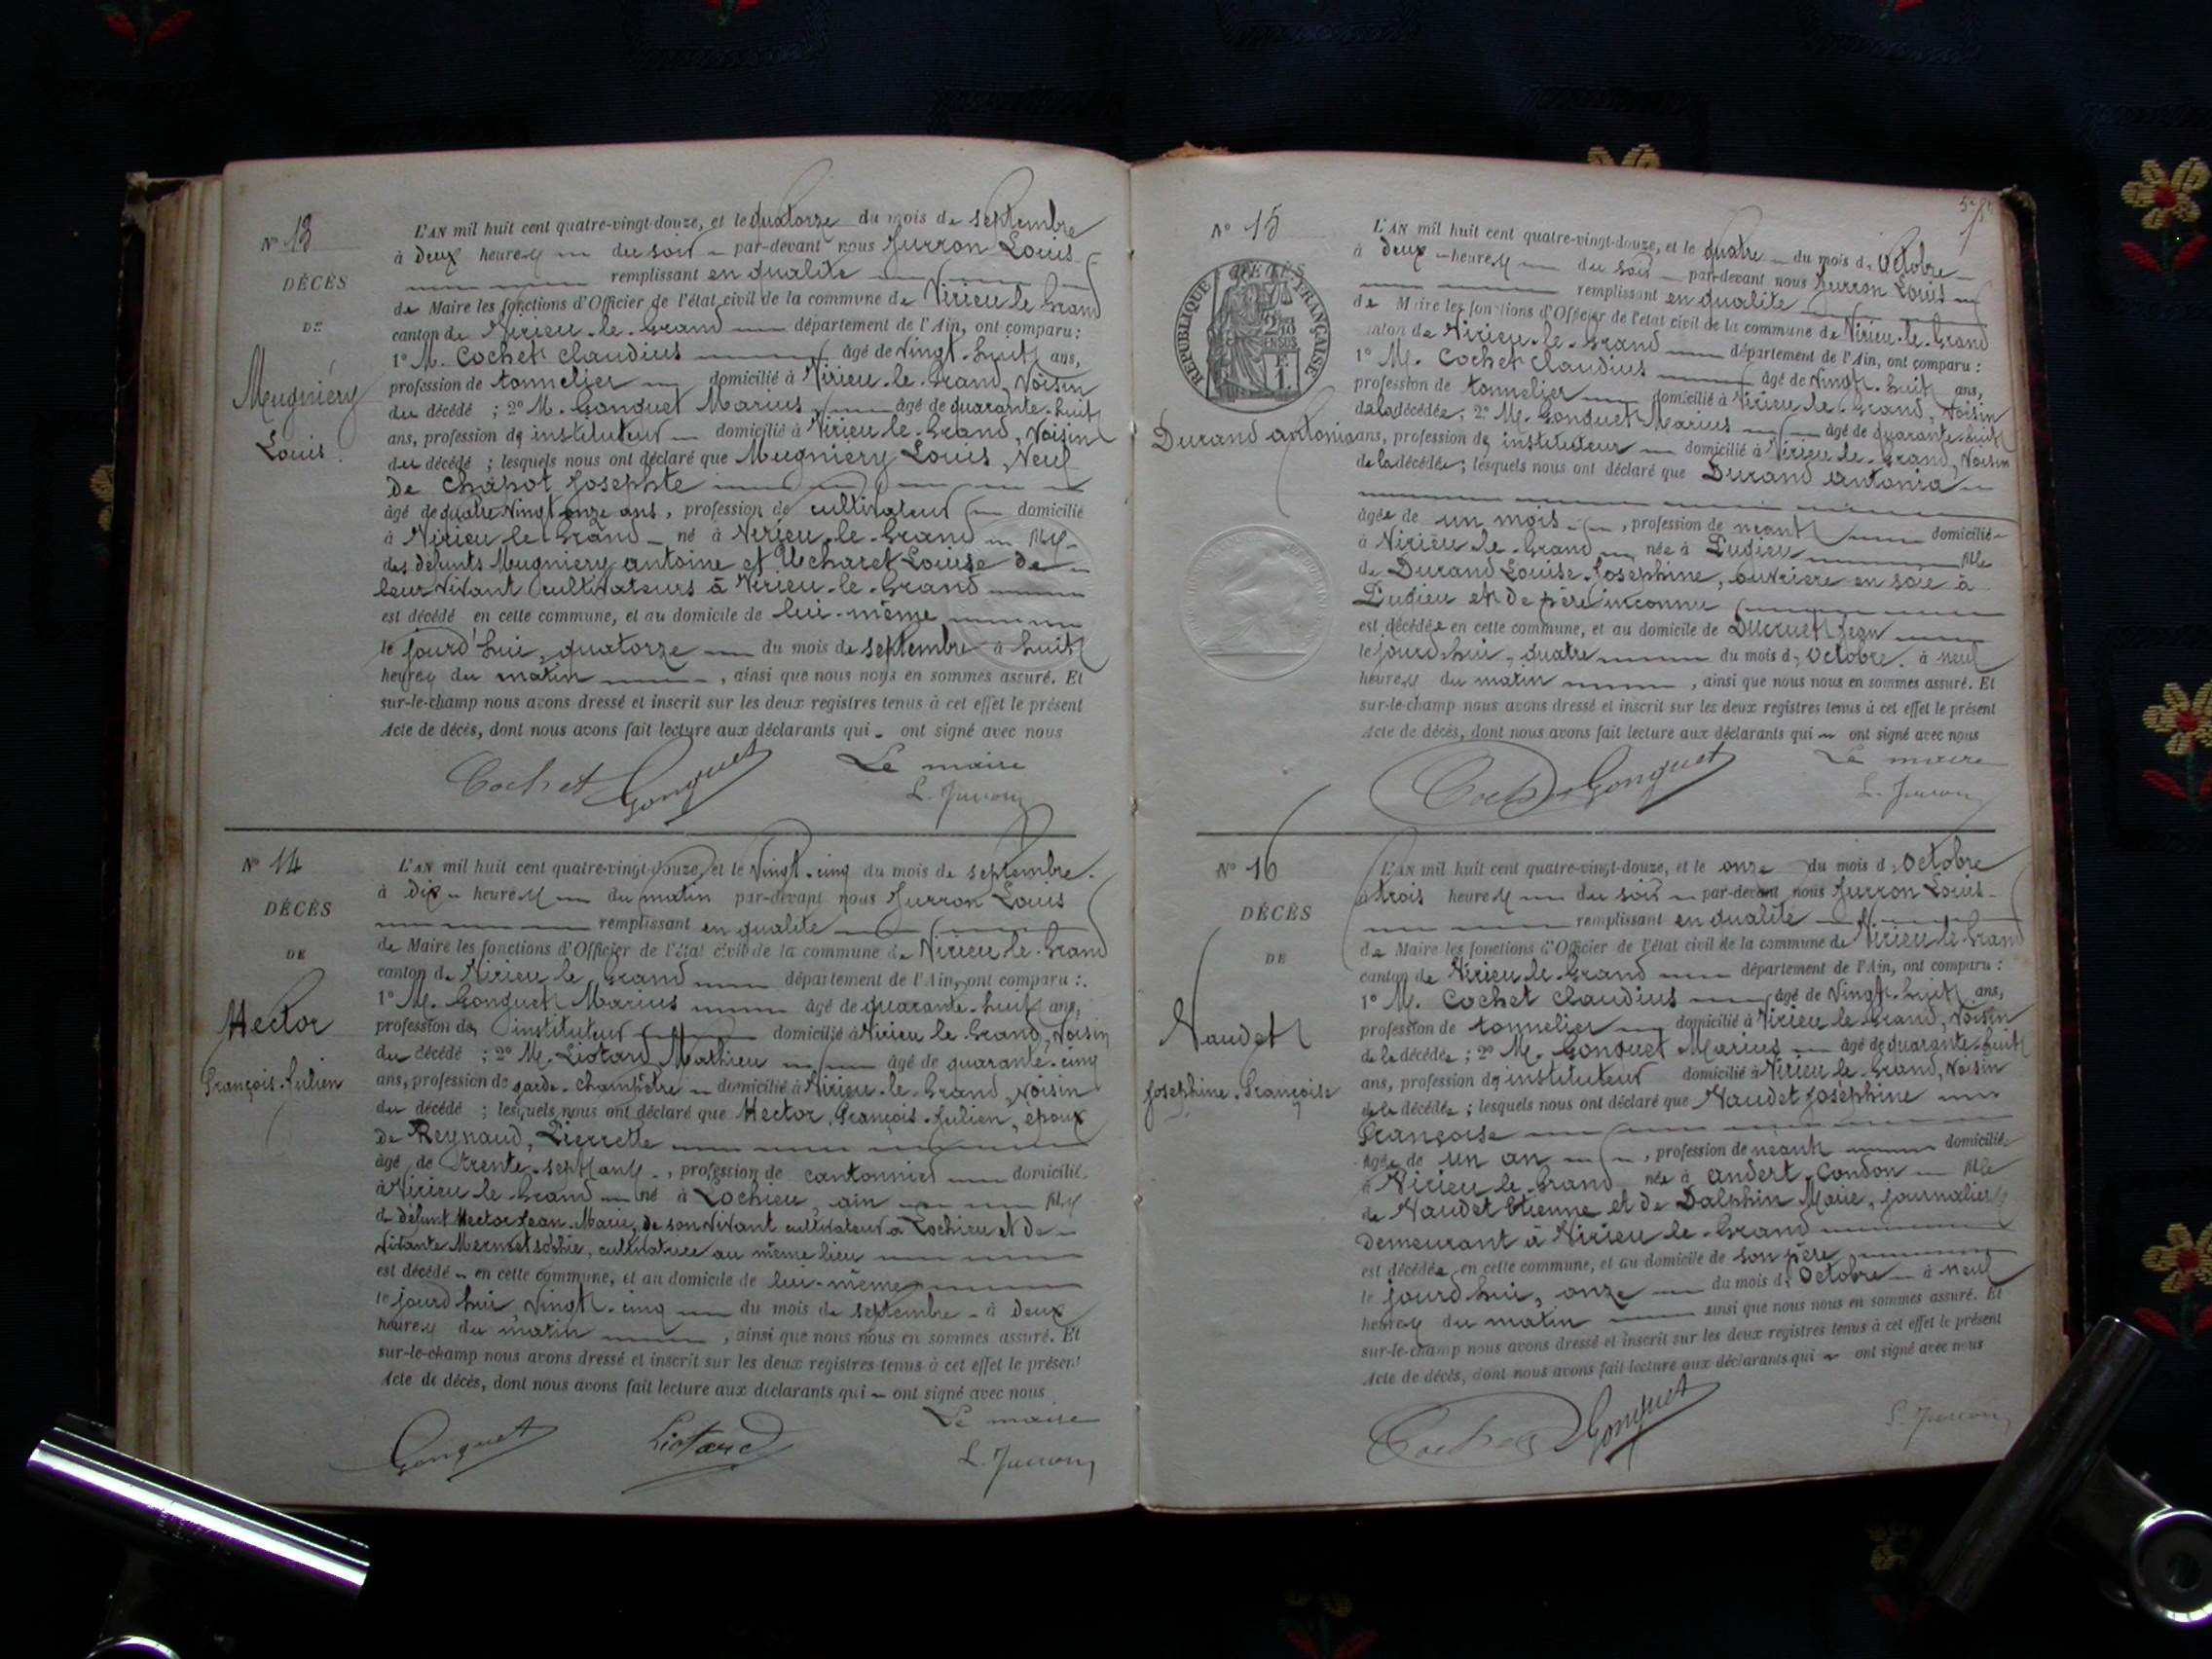 N° 13
DÉCÈS
DE
Mugniéry
Louis.
L'AN mil huit cent quatre-vingt-douze, et le quatorze du mois de septembre
à deux heures du soir par-devant nous Jurron Louis
remplissant en qualité
de Maire les fonctions d'Officier de l'état civil de la commune de Virieu le Grand
canton de Virieu-le-Grand département de l'Ain, ont comparu :
1° M. Cochet Claudius âgé de vingt-huit ans,
profession de tonnelier domicilié à Virieu-le-Grand, voisin
du décédé ; 2° M. Gonguet Marius âgé de quarante-huit
ans, profession de instituteur domicilié à Virieu-le-Grand, voisin
du décédé ; lesquels nous ont déclaré que Mugniery Louis, veuf
de Chapot Josephte
âgé de quatre vingt onze ans, profession de cultivateur domicilié
à Virieu le Grand né à Virieu-le-Grand fils
des défunts Mugniery Antoine et Louise de
leur vivant cultivateurs à Virieu-le-Grand
est décédé en cette commune, et au domicile de lui-même
le jourd'hui, quatorze du mois de septembre à huit
heures du matin, ainsi que nous nous en sommes assuré. Et
sur-le-champ nous avons dressé et inscrit sur les deux registres tenus à cet effet le présent
Acte de décès, dont nous avons fait lecture aux déclarants qui ont signé avec nous
Cochet Gonguet Le maire
L. Jurron
N° 14
DÉCÈS
DE
Hector
François-Julien
L'AN mil huit cent quatre-vingt-douze, et le vingt-cinq du mois de septembre.
à dix heures du matin par-devant nous Jurron Louis
remplissant en qualité
de Maire les fonctions d'Officier de l'état civil de la commune de Virieu le Grand
canton de Virieu le Grand département de l'Ain, ont comparu :
1° M. Gonguet Marius âgé de quarante-huit ans,
profession de instituteur domicilié à Virieu le Grand, voisin
du décédé ; 2° M. Liotard Mathieu âgé de quarante-cinq
ans, profession de garde-champêtre domicilié à Virieu-le-Grand, voisin
du décédé ; lesquels nous ont déclaré que Hector, François-Julien, époux
de Reynaud, Pierrette
âgé de trente-sept ans, profession de cantonnier domicilié
à Virieu le Grand né à Lochieu, ain fils
d défunt Hector Jean-Marie, de son vivant cultivateur à Lochieu et de
vivante Mermet Sophie, cultivatrice au même lieu
est décédé en cette commune, et au domicile de lui-même
le jourd'hui vingt-cinq du mois de septembre à deux
heures du matin, ainsi que nous nous en sommes assuré. Et
sur-le-champ nous avons dressé et inscrit sur les deux registres tenus à cet effet le présent
Acte de décès, dont nous avons fait lecture aux déclarants qui ont signé avec nous
Gonguet Liotard Le maire
L. Jurron
N° 15
RÉPUBLIQUE FRANÇAISE
Durand Antonia
L'AN mil huit cent quatre-vingt-douze, et le quatre du mois d'Octobre
à deux heures du soir par-devant nous Jurron Louis
remplissant en qualité
de Maire les fonctions d'Officier de l'état civil de la commune de Virieu-le-Grand
canton de Virieu-le-Grand département de l'Ain, ont comparu :
1° M. Cochet Claudius âgé de vingt-huit ans,
profession de tonnelier domicilié à Virieu-le-Grand, voisin
de la décédée ; 2° M. Gonguet Marius âgé de quarante-huit
ans, profession de instituteur domicilié à Virieu-le-Grand, voisin
de la décédée ; lesquels nous ont déclaré que Durand Antonia
âgée de un mois, profession de néant domiciliée
à Virieu le Grand née à Pugieu fille
de Durand Louise-Joséphine, ouvrière en soie à
Pugieu et de père inconnu
est décédée en cette commune, et au domicile de Ducruet Jean
le jourd'hui, quatre du mois d'Octobre à neuf
heures du matin, ainsi que nous nous en sommes assuré. Et
sur-le-champ nous avons dressé et inscrit sur les deux registres tenus à cet effet le présent
Acte de décès, dont nous avons fait lecture aux déclarants qui ont signé avec nous
Cochet Gonguet Le maire
L. Jurron
N° 16
DÉCÈS
DE
Naudet
Joséphine-Françoise
L'AN mil huit cent quatre-vingt-douze, et le onze du mois d'Octobre
à trois heures du soir par-devant nous Jurron Louis
remplissant en qualité
de Maire les fonctions d'Officier de l'état civil de la commune de Virieu le Grand
canton de Virieu le Grand département de l'Ain, ont comparu :
1° M. Cochet Claudius âgé de vingt-huit ans,
profession de tonnelier domicilié à Virieu le Grand, voisin
de la décédée ; 2° M. Gonguet Marius âgé de quarante-huit
ans, profession de instituteur domicilié à Virieu le Grand, voisin
de la décédée ; lesquels nous ont déclaré que Naudet Joséphine
Françoise
âgée de un an, profession de néant domiciliée
à Virieu le Grand née à Andert-Condon fille
de Naudet Etienne et de Dalphin Marie, journaliers
demeurant à Virieu-le-Grand
est décédée en cette commune, et au domicile de son père
le jourd'hui, onze du mois d'Octobre à neuf
heures du matin ainsi que nous nous en sommes assuré. Et
sur-le-champ nous avons dressé et inscrit sur les deux registres tenus à cet effet le présent
Acte de décès, dont nous avons fait lecture aux déclarants qui ont signé avec nous
Cochet Gonguet L. Jurron